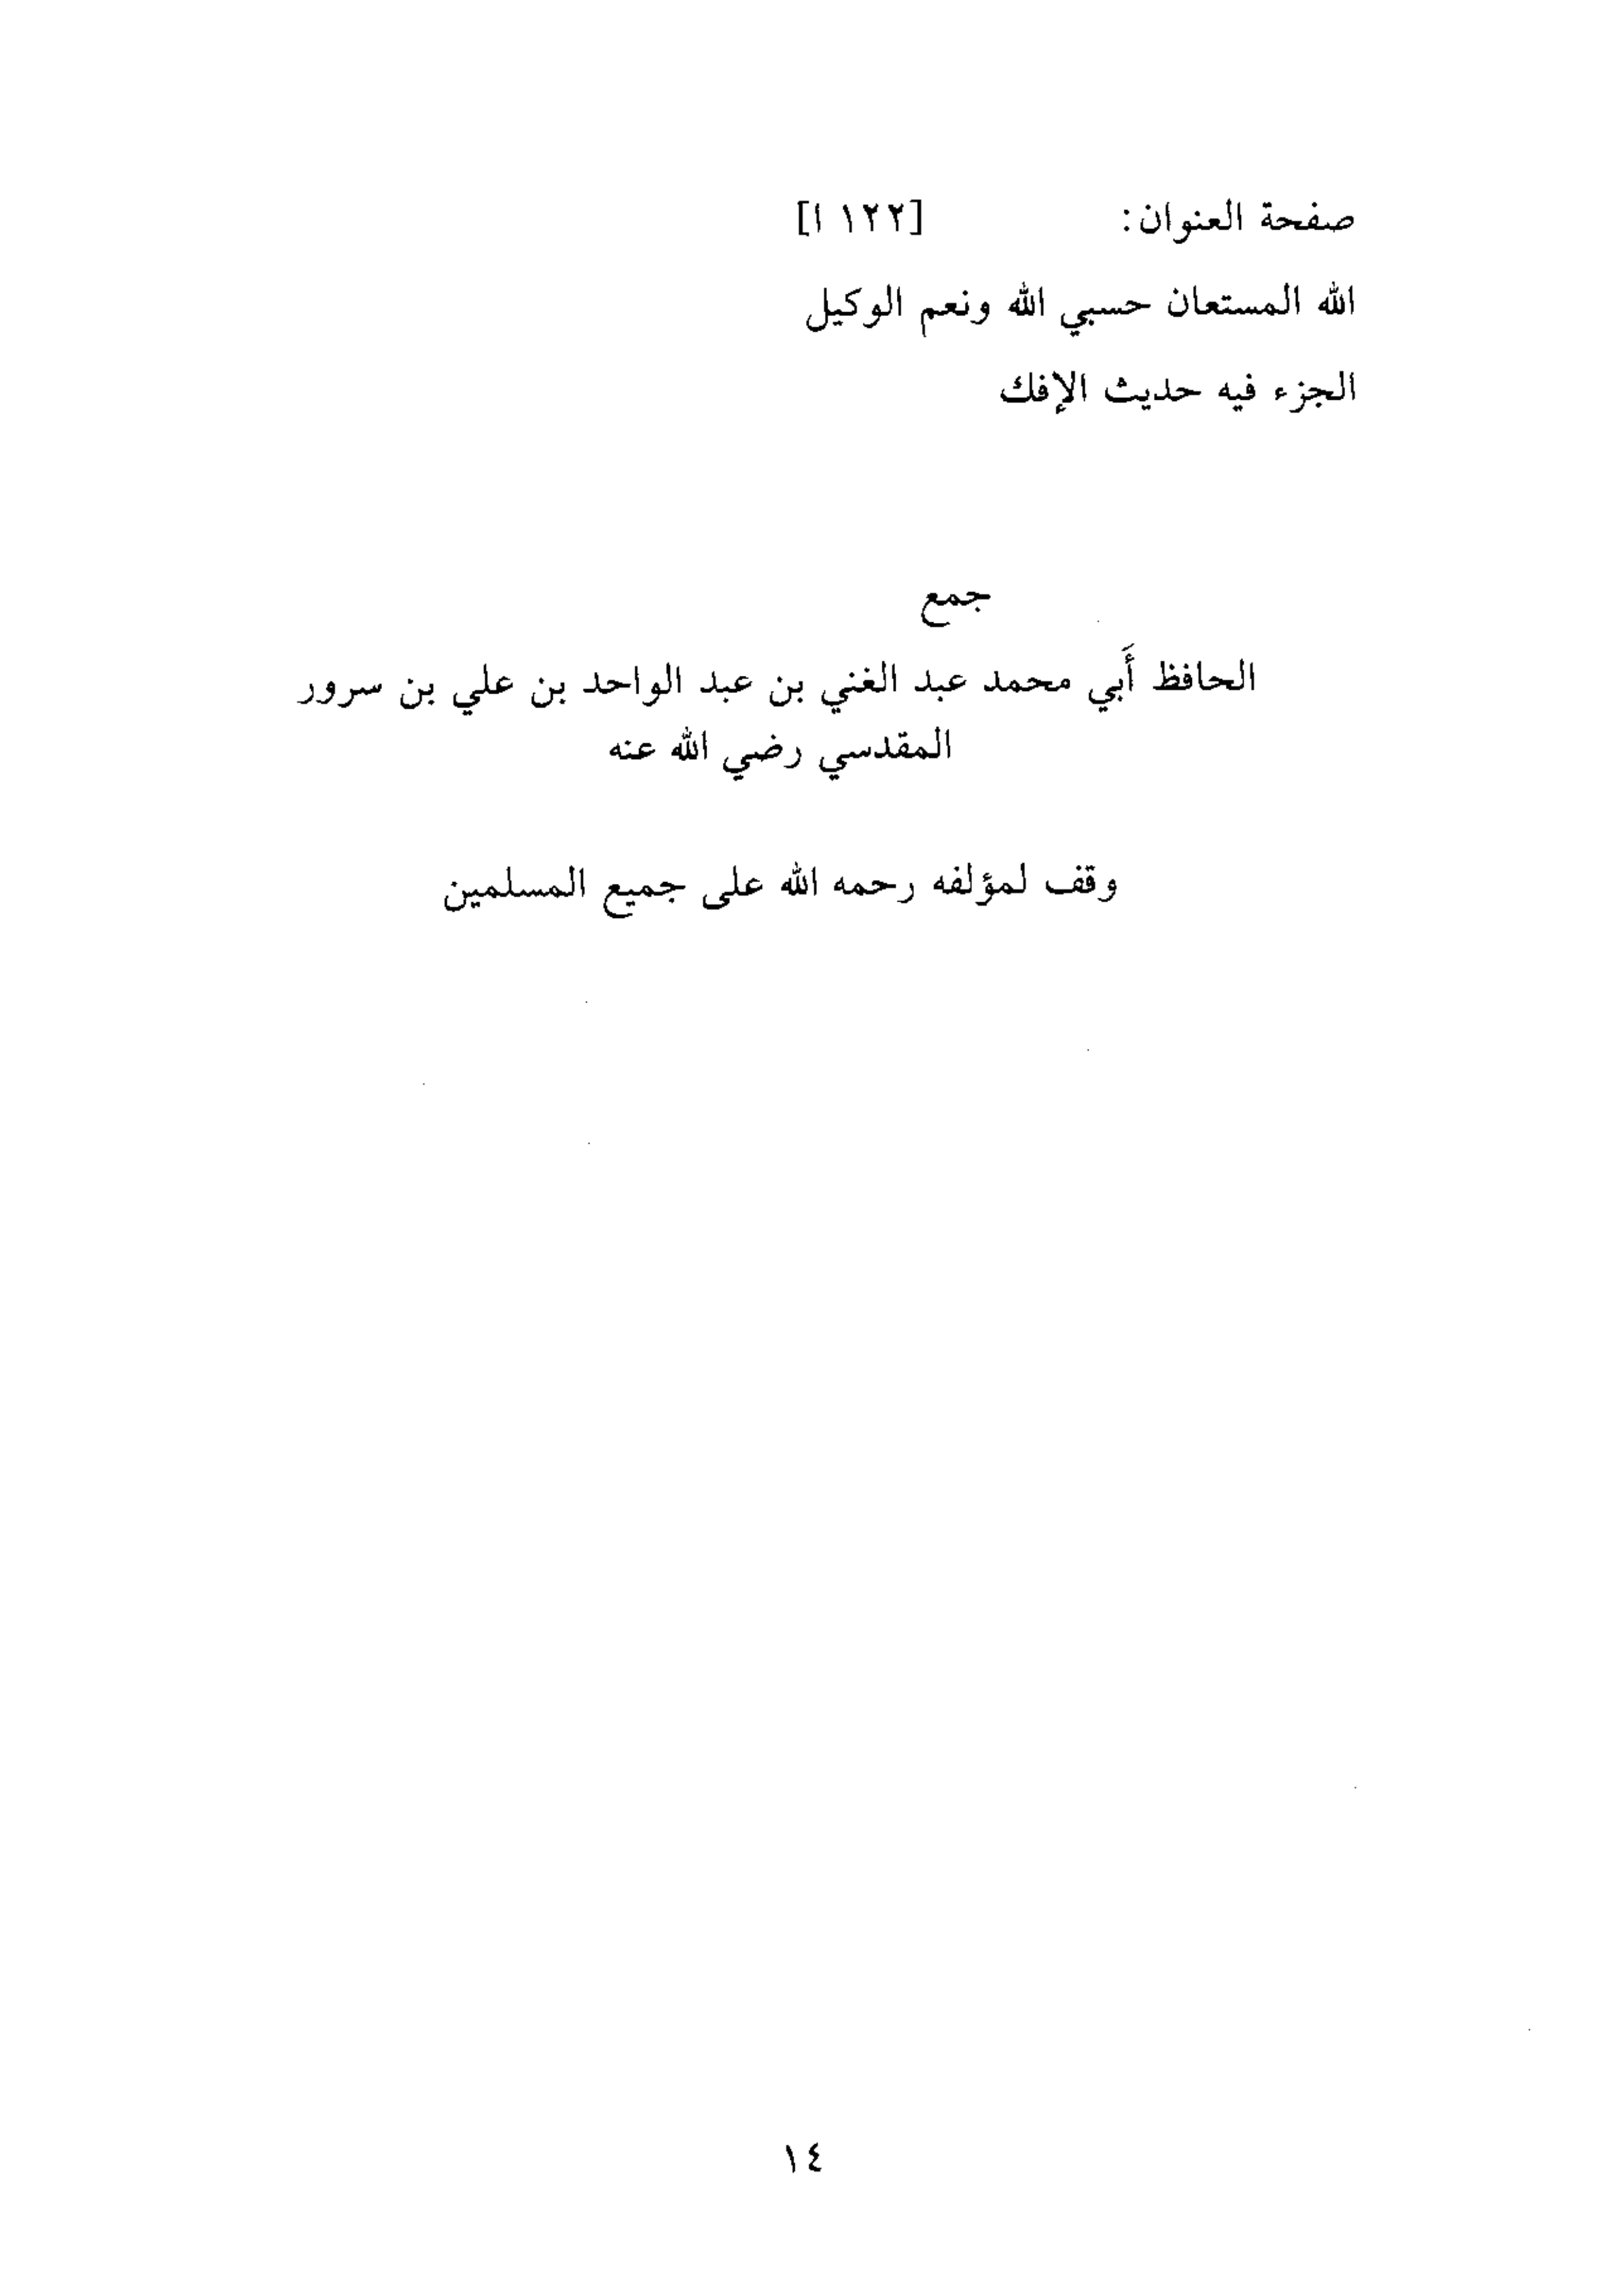 صفحة العنوان: [١٢٢ ا]
الله المستعان حسبي الله ونعم الوكيل
الجزء فيه حديث الإفك
جمع
الحافظ أَبي محمد عبد الغني بن عبد الواحد بن علي بن سرور
المقدسي رضي الله عنه
وقف لمؤلفه رحمه الله على جميع المسلمين
١٤